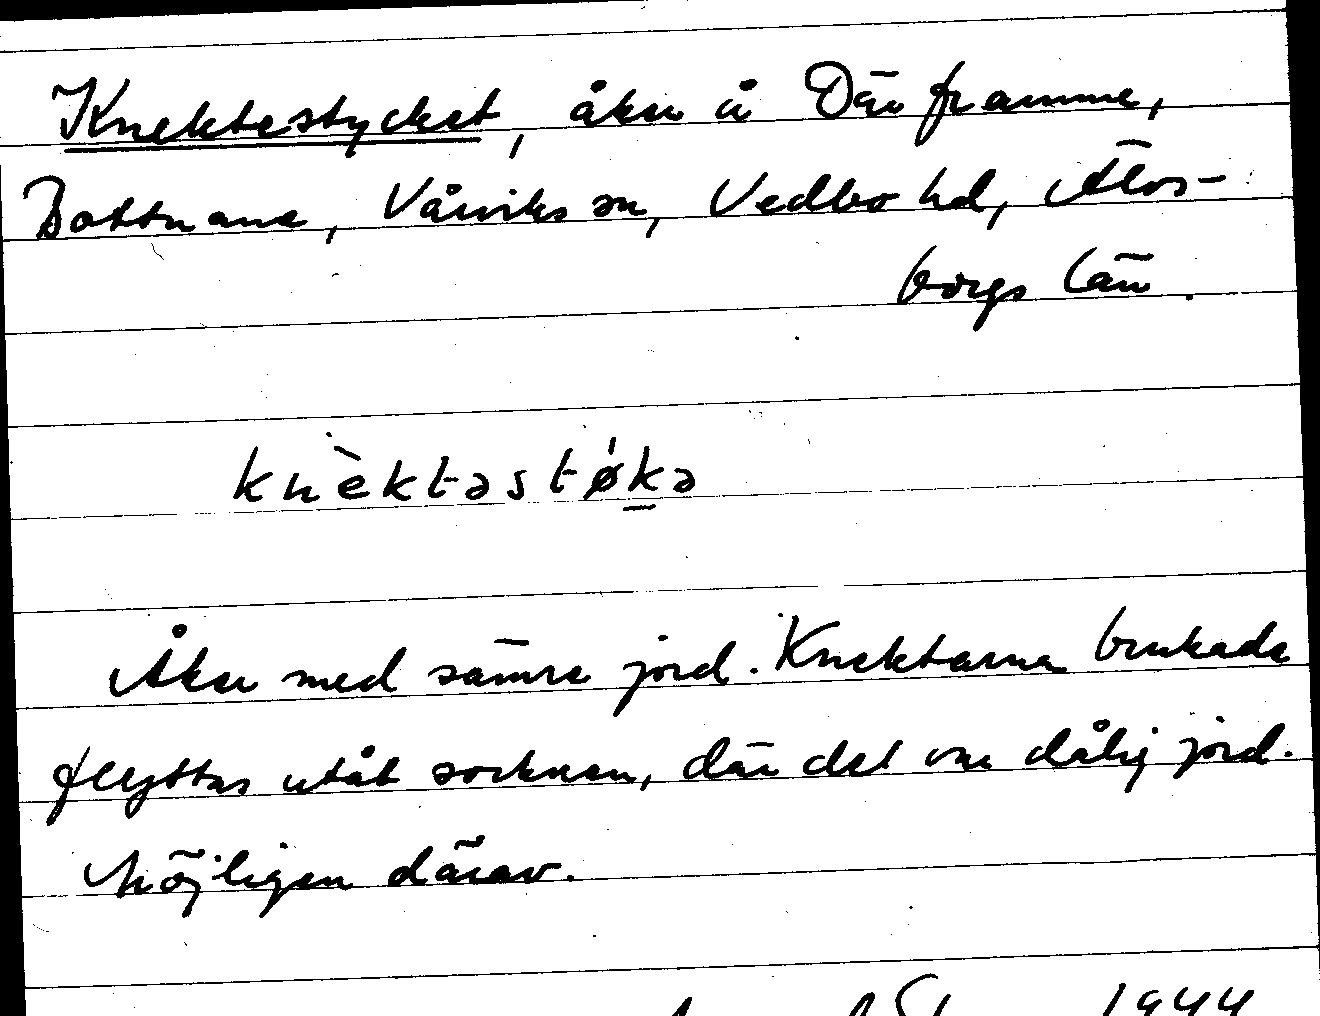 Knektestycket, åker å Där framme,
Bottnane, Vårviks sn, Vedbo hd, Älvs-
borgs län.
knèktəstø̍kə
Åker med sämre jord. Knektarna brukade
flyttas utåt socknen, där det var dålig jord.
Möjligen därav.
1944